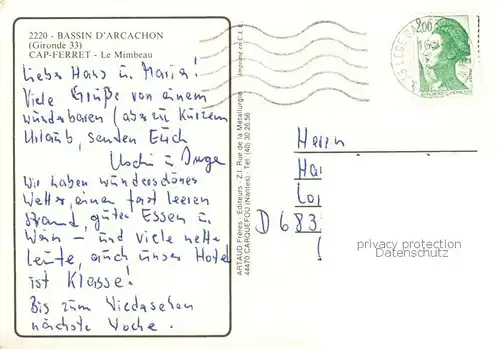 2220 - BASSIN D'ARCACHON
(Gironde 33)
CAP-FERRET - Le Mimbeau
Liebe Hans u. Maria!
Viele Grüße von einem
wunderbaren (aber zu kurzem
Urlaub, senden Euch
Uschi u.
Wir haben wunderschönes
Wetter, einen fast leeren
Strand, gutes Essen u.
Wein - und viele nette
Leute, auch unser Hotel
ist Klasse!
Bis zum Wiedersehen
nächste Woche.
Imprimé en C.E.E.
ARTAUD Frères - Editeurs - Z.I. Rue de la Métallurgie
44470 CARQUEFOU (Nantes) - Tél. (40) 30.26.56
2,00
Herrn
Ha
Lo
D 683
privacy protection
Datenschutz